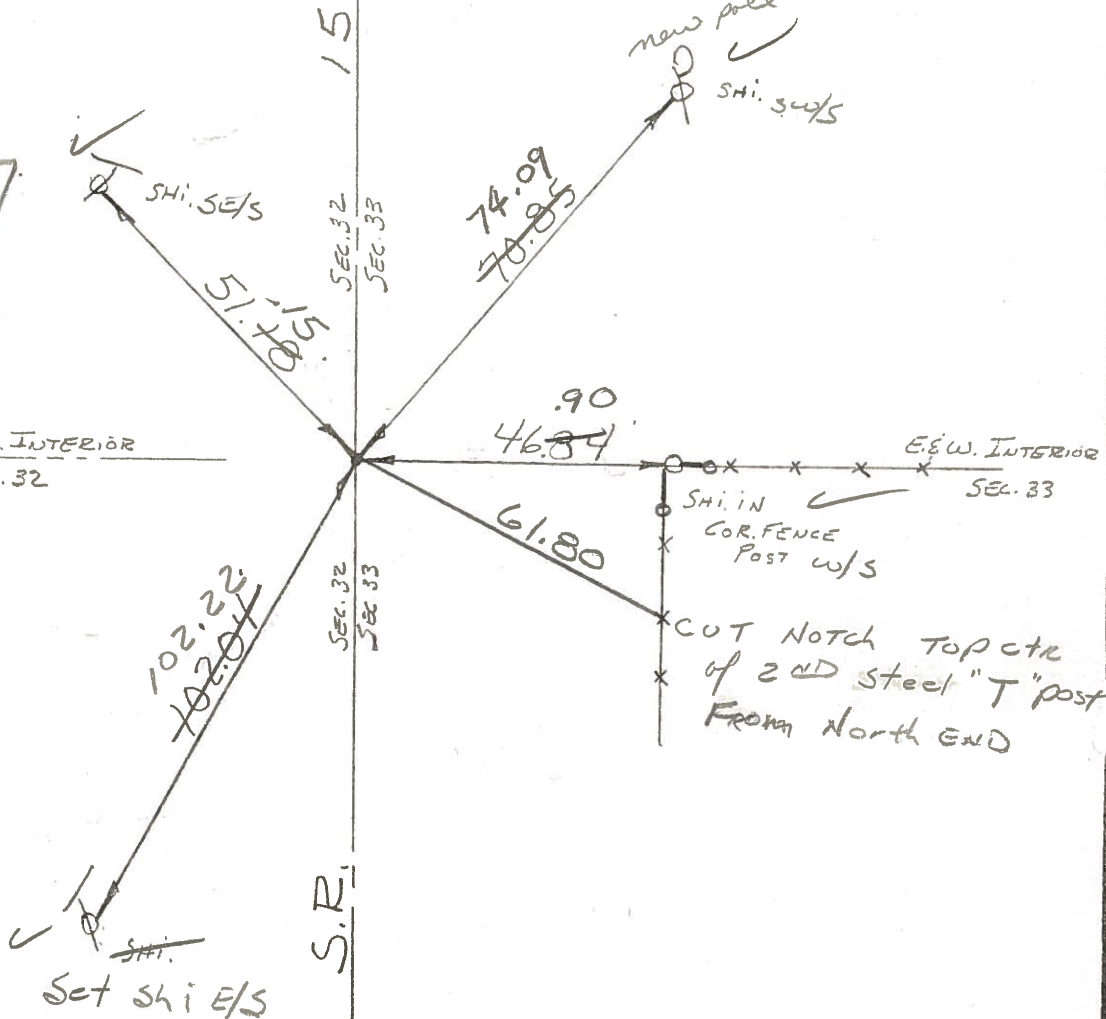 15
new pole
SHI. SW/S
SHI. SE/S
74.09
70.85
SEC. 32
SEC. 33
.15
51.70
.90
46.84'
. INTERIOR
. 32
E.&W. INTERIOR
SEC. 33
SHI. IN
COR. FENCE
POST W/S
61.80
SEC. 32
SEC. 33
102.22
102.04
CUT NOTCH TOP ctr
of 2ND Steel "T" post
From North END
S.R.
SHI.
Set Shi E/S